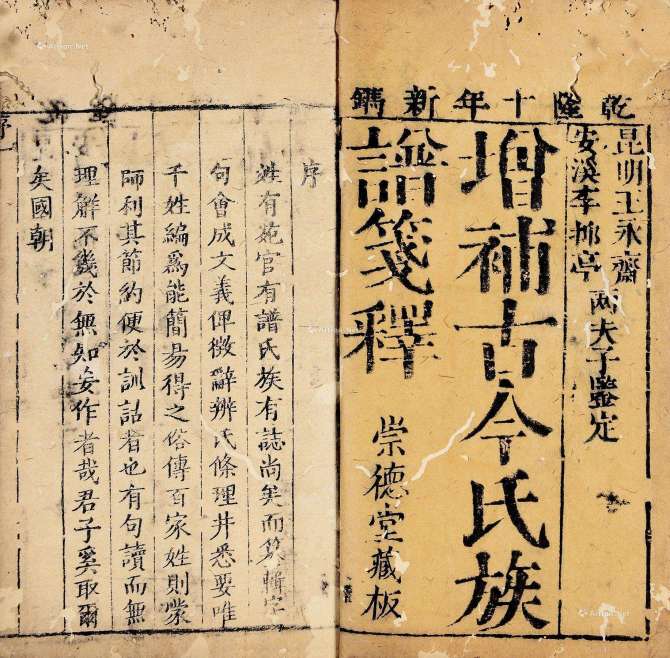 乾隆十年新鐫
昆明王永齋
安溪李
亭
兩夫子鑒定
增補古今氏族
譜箋釋
崇德堂藏板
序
姓有苑官有譜氏族有誌尚矣而纂輯字
句會成文義俾徵辭辨氏條理井悉要唯
千姓編爲能簡易得之俗傳百家姓則蒙
師利其節約便於訓詁者也有句讀而無
理解不幾於無知妄作者哉君子奚取爾
矣國朝